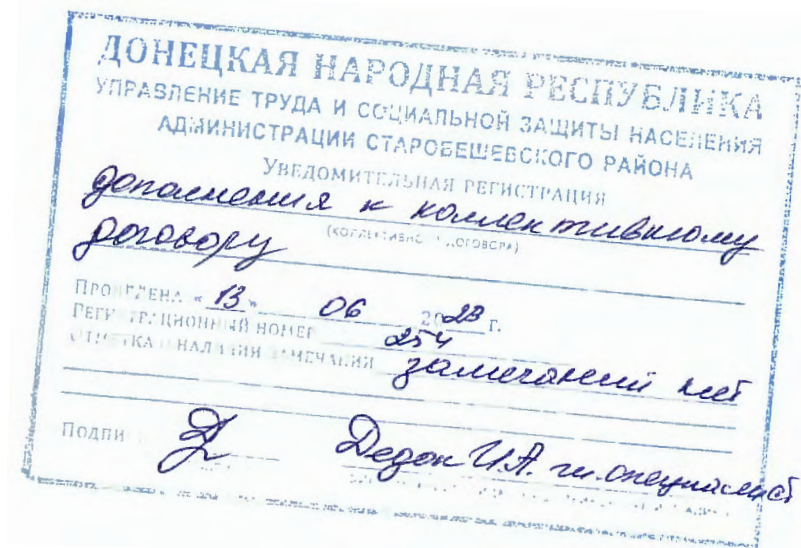 ДОНЕЦКАЯ НАРОДНАЯ РЕСПУБЛИКА
УПРАВЛЕНИЕ ТРУДА И СОЦИАЛЬНОЙ ЗАЩИТЫ НАСЕЛЕНИЯ
АДМИНИСТРАЦИИ СТАРОБЕШЕВСКОГО РАЙОНА
УВЕДОМИТЕЛЬНАЯ РЕГИСТРАЦИЯ
дополнения к коллективному
договору
(КОЛЛЕКТИВНОГО ДОГОВОРА)
ПРОВЕДЕНА «13» 06 2023 г.
РЕГИСТРАЦИОННЫЙ НОМЕР 254
ОТМЕТКА О НАЛИЧИИ ЗАМЕЧАНИЙ замечаний нет
Подпи Дедок И.А. гл. специалист